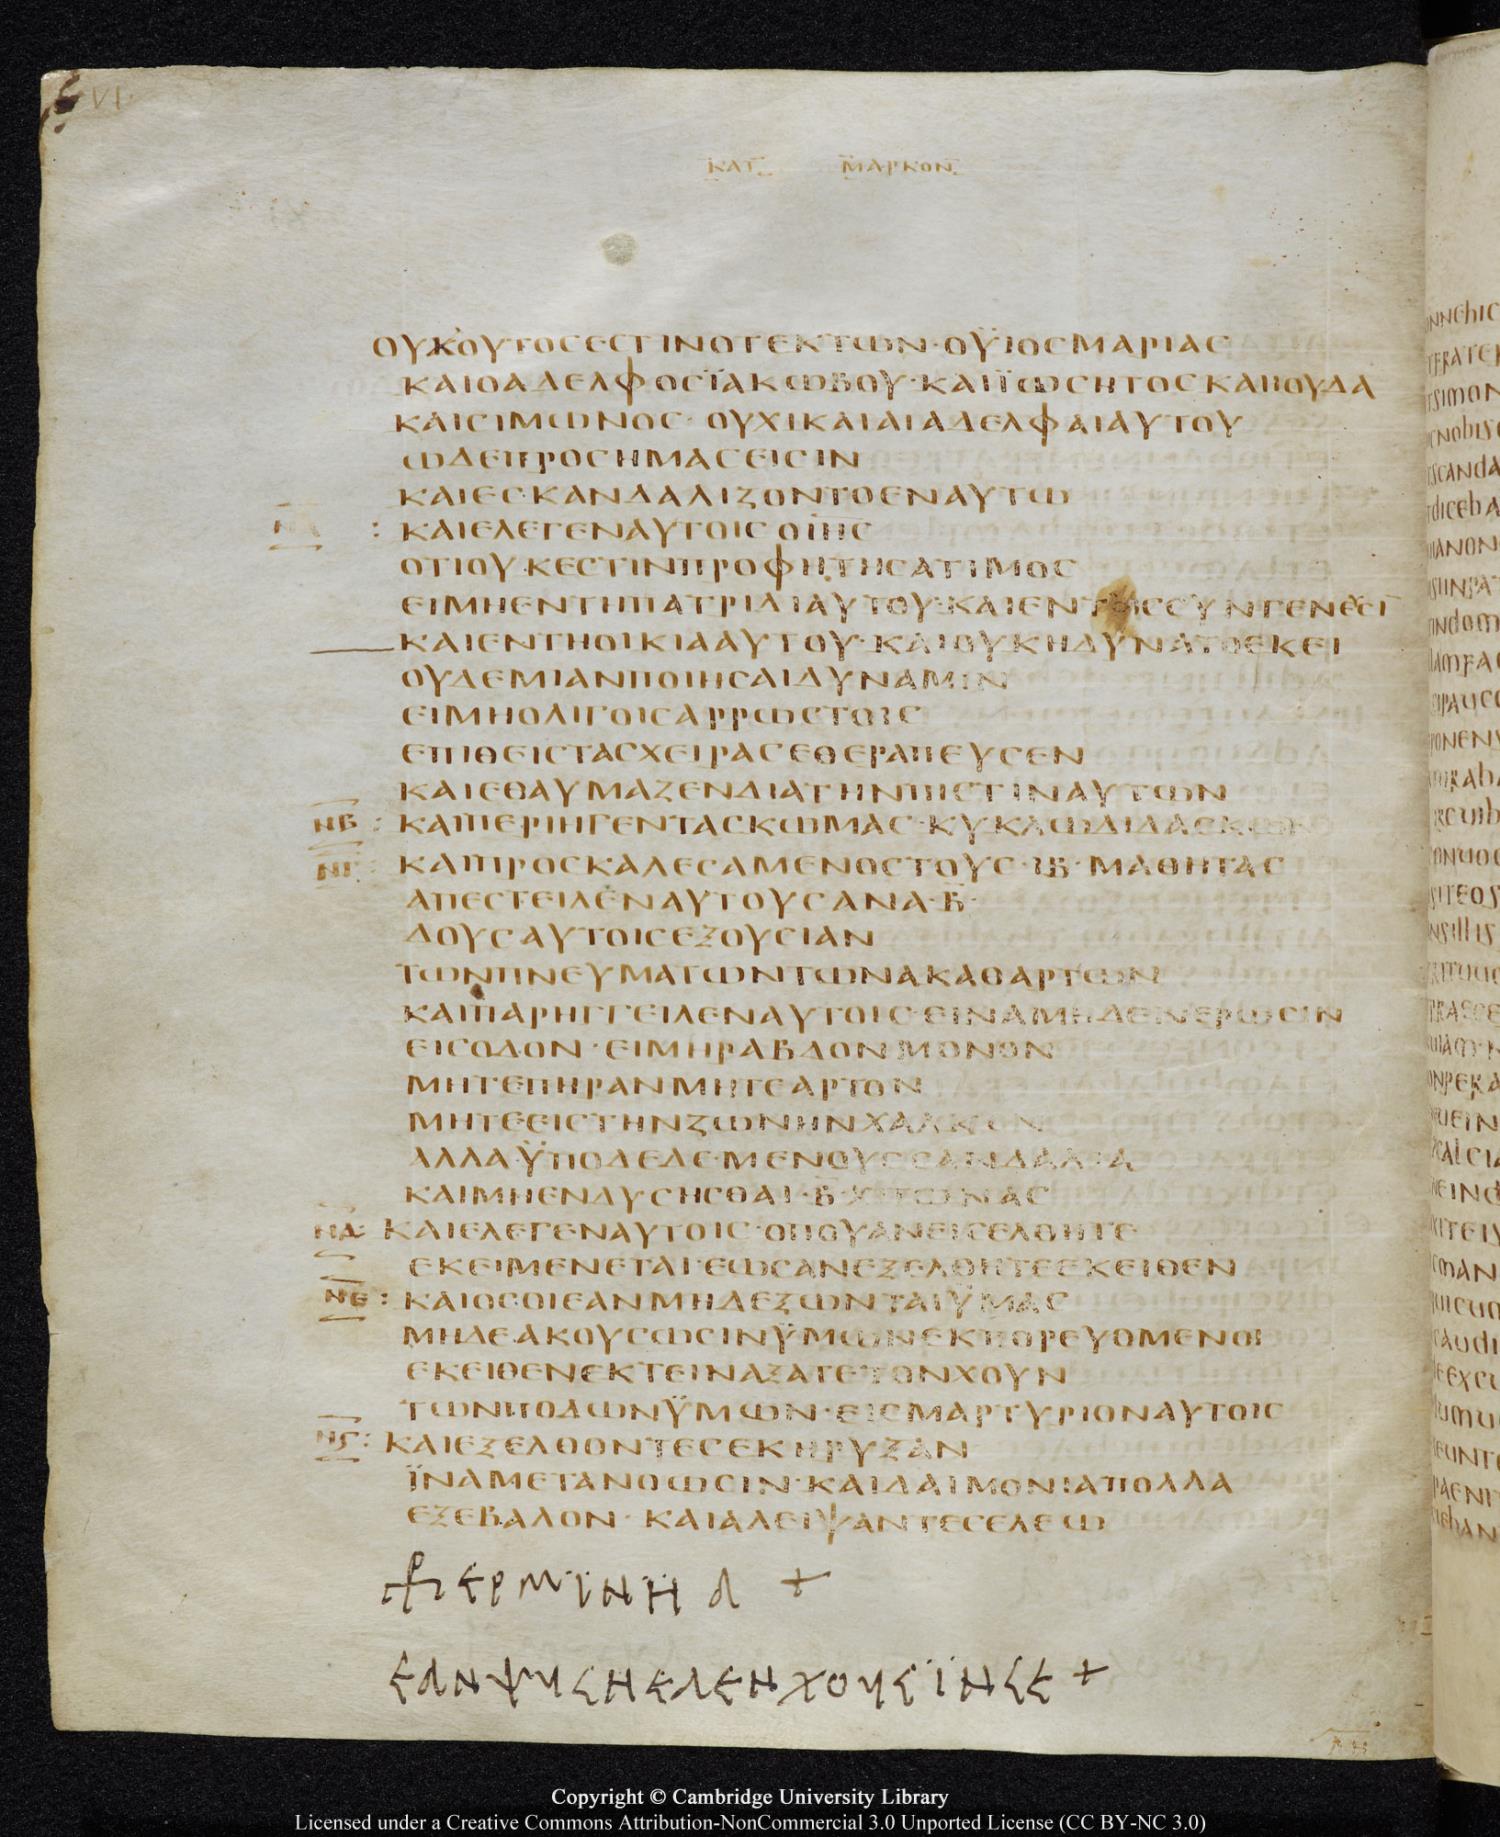 VI
ΚΑΤ ΜΑΡΚΟΝ
ΟΥΚΟΥΤΟСΕСΤΙΝΟΤΕΚΤΩΝ·ΟΫΙΟСΜΑΡΙΑС
ΚΑΙΟΑΔΕΛΦΟСΪΑΚΩΒΟΥ·ΚΑΙΪΩСΗΤΟСΚΑΙΙΟΥΔΑ
ΚΑΙСΙΜΩΝΟС·ΟΥΧΙΚΑΙΑΙΑΔΕΛΦΑΙΑΥΤΟΥ
ΩΔΕΠΡΟСΗΜΑСΕΙСΙΝ
ΚΑΙΕСΚΑΝΔΑΛΙΖΟΝΤΟΕΝΑΥΤΩ
ΝΑ : ΚΑΙΕΛΕΓΕΝΑΥΤΟΙСΟΙΗС
ΟΤΙΟΥΚΕСΤΙΝΠΡΟΦΗΤΗСΑΤΙΜΟС
ΕΙΜΗΕΝΤΗΠΑΤΡΙΔΙΑΥΤΟΥ·ΚΑΙΕΝΤΟΙССΥΝΓΕΝΕСΙ
ΚΑΙΕΝΤΗΟΙΚΙΑΑΥΤΟΥ·ΚΑΙΟΥΚΗΔΥΝΑΤΟΕΚΕΙ
ΟΥΔΕΜΙΑΝΠΟΙΗСΑΙΔΥΝΑΜΙΝ
ΕΙΜΗΟΛΙΓΟΙСΑΡΡΩСΤΟΙС
ΕΠΙΘΕΙСΤΑСΧΕΙΡΑСΕΘΕΡΑΠΕΥСΕΝ
ΚΑΙΕΘΑΥΜΑΖΕΝΔΙΑΤΗΝΠΙСΤΙΝΑΥΤΩΝ
ΝΒ : ΚΑΙΠΕΡΙΗΓΕΝΤΑСΚΩΜΑС·ΚΥΚΛΩΔΙΔΑСΚΩΝ
ΝΓ : ΚΑΙΠΡΟСΚΑΛΕСΑΜΕΝΟСΤΟΥС·ΙΒ·ΜΑΘΗΤΑС
ΑΠΕСΤΕΙΛΕΝΑΥΤΟΥСΑΝΑ·Β·
ΔΟΥСΑΥΤΟΙСΕΞΟΥСΙΑΝ
ΤΩΝΠΝΕΥΜΑΤΩΝΤΩΝΑΚΑΘΑΡΤΩΝ
ΚΑΙΠΑΡΗΓΓΕΙΛΕΝΑΥΤΟΙС·ΕΙΝΑΜΗΔΕΝΕΡΩСΙΝ
ΕΙСΟΔΟΝ·ΕΙΜΗΡΑΒΔΟΝΜΟΝΟΝ
ΜΗΤΕΠΗΡΑΝΜΗΤΕΑΡΤΟΝ
ΜΗΤΕΕΙСΤΗΝΖΩΝΗΝΧΑΛΚΟΝ
ΑΛΛΑΫΠΟΔΕΔΕΜΕΝΟΥССΑΝΔΑΛΙΑ
ΚΑΙΜΗΕΝΔΥСΗСΘΑΙ·Β·ΧΙΤΩΝΑС
ΝΔ: ΚΑΙΕΛΕΓΕΝΑΥΤΟΙС·ΟΠΟΥΑΝΕΙСΕΛΘΗΤΕ
ΕΚΕΙΜΕΝΕΤΑΙ·ΕΩСΑΝΕΞΕΛΘΗΤΕΕΚΕΙΘΕΝ
ΝΕ : ΚΑΙΟСΟΙΕΑΝΜΗΔΕΞΩΝΤΑΙΫΜΑС
ΜΗΔΕΑΚΟΥСΩСΙΝΫΜΩΝΕΚΠΟΡΕΥΟΜΕΝΟΙ
ΕΚΕΙΘΕΝΕΚΤΕΙΝΑΞΑΤΕΤΟΝΧΟΥΝ
ΤΩΝΠΟΔΩΝΫΜΩΝ·ΕΙСΜΑΡΤΥΡΙΟΝΑΥΤΟΙС
ΝϚ: ΚΑΙΕΞΕΛΘΟΝΤΕСΕΚΗΡΥΞΑΝ
ΪΝΑΜΕΤΑΝΟΩСΙΝ·ΚΑΙΔΑΙΜΟΝΙΑΠΟΛΛΑ
ΕΞΕΒΑΛΟΝ·ΚΑΙΑΛΕΙΨΑΝΤΕСΕΛΕΩ
⳨ΕΡΜΪΝΗΑ +
ΕΑΝΨΥСΗΕΛΕΝΧΟΥСΪΝСΕ +
Copyright © Cambridge University Library
Licensed under a Creative Commons Attribution-NonCommercial 3.0 Unported License (CC BY-NC 3.0)